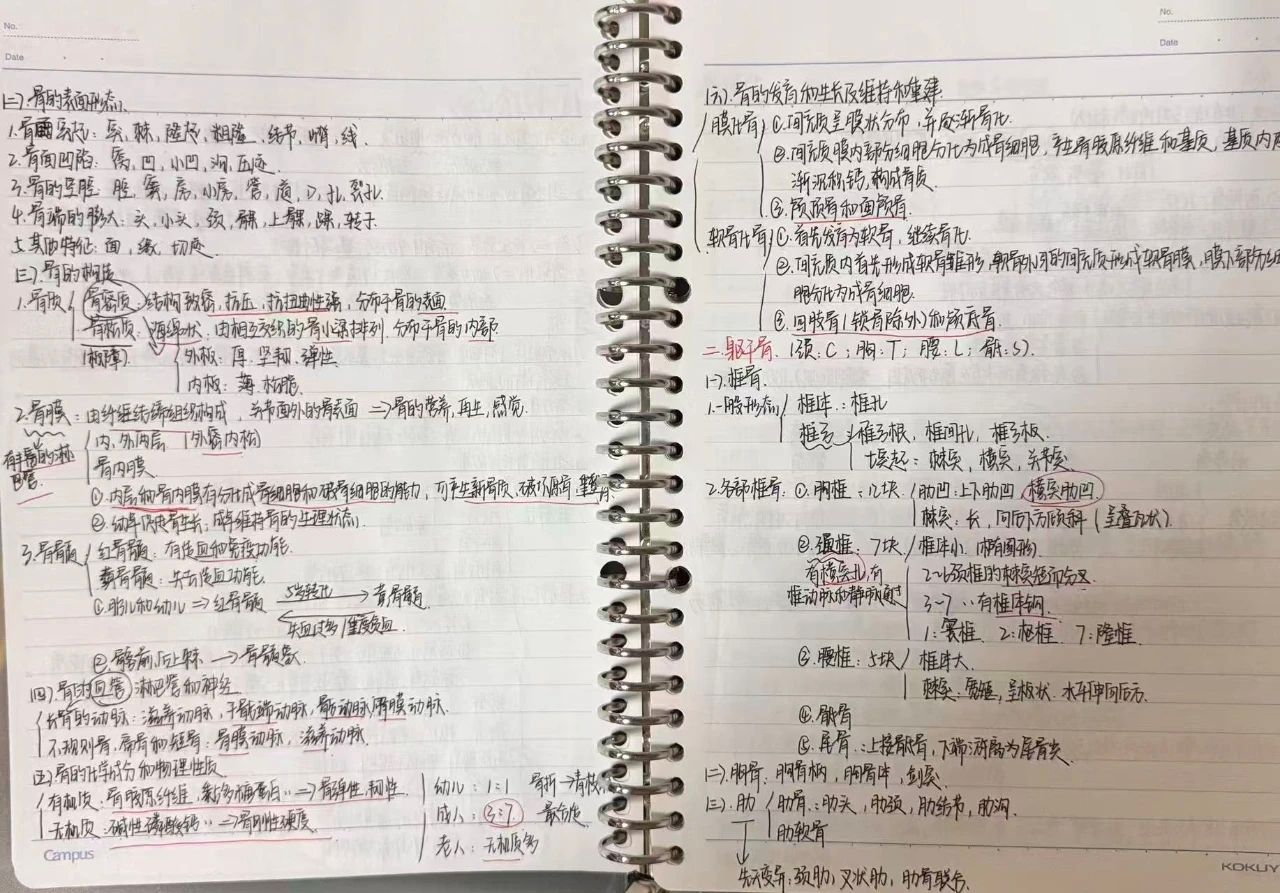 No.
Date
(二).骨的表面形态.
1.骨面突起:突,棘,隆起,粗隆,结节,嵴,线.
2.骨面凹陷:窝,凹,小凹,沟,压迹.
3.骨的空腔:腔,窦,房,小房,管,道,口,孔,裂孔.
4.骨端的膨大:头,小头,颈,髁,上髁,踝,转子.
5.其他特征:面,缘,切迹.
(三).骨的构造
1.骨质 骨密质:结构致密,抗压,抗扭曲性强,分布于骨的表面
骨松质:海绵状,由相互交织的骨小梁排列,分布于骨的内部
(板障) 外板:厚.坚韧.弹性
内板:薄.松脆.
2.骨膜:由纤维结缔组织构成,关节面外的骨表面 ⇒骨的营养,再生,感觉.
有丰富的神经血管. 内、外两层 (外密内松)
骨内膜
①.内层和骨内膜有分化成骨细胞和破骨细胞的能力,可产生新骨质,破坏原骨,重塑骨.
②.幼年促进骨生长,成年维持骨的生理状态.
3.骨髓 红骨髓:有造血和免疫功能.
黄骨髓:失去造血功能.
①.胎儿和幼儿⇒红骨髓 5岁转化→ 黄骨髓.
失血过多/重度贫血
②.髂前/后上棘→骨髓象.
(四).骨的血管淋巴管和神经
长骨的动脉:滋养动脉,干骺端动脉,骺动脉,骨膜动脉.
不规则骨,扁骨和短骨:骨膜动脉,滋养动脉.
(五)骨的化学成分和物理性质
有机质:骨胶原纤维,氨多糖蛋白..⇒骨弹性,韧性.
无机质:碱性磷酸钙..⇒骨刚性硬度.
幼儿:1:1 骨折→青枝
成人:3:7 最合适
老人:无机质多
Campus
No.
Date
(六).骨的发育和生长及维持和重建.
膜化骨 ①.间充质呈膜状分布,并逐渐骨化.
②.间充质膜内部分细胞分化为成骨细胞,产生骨胶原纤维和基质,基质内
渐沉积钙,构成骨质.
③.颅顶骨和面颅骨.
软骨化骨 ①.首先发育为软骨,继续骨化.
②.间充质内首先形成软骨雏形,软骨外周的间充质形成软骨膜,膜下部分细
胞分化为成骨细胞.
③.四肢骨(锁骨除外)和颅底骨.
二.躯干骨. (颈:C;胸:T;腰:L;骶:S).
(一).椎骨.
1.一般形态 椎体:椎孔
椎弓 椎弓根,椎间孔,椎弓板.
七突起:棘突,横突,关节突.
2.各部椎骨 ①.胸椎:12块 肋凹:上下肋凹,横突肋凹
棘突:长,向后下方倾斜(呈叠瓦状)
②.颈椎:7块 椎体小.(椭圆形).
有横突孔,有 2~6颈椎的棘突短而分叉.
椎动脉和静脉通过 3~7..有椎体钩.
1:寰椎. 2:枢椎. 7:隆椎.
③.腰椎:5块 椎体大.
棘突:宽短,呈板状.水平伸向后方.
④.骶骨
⑤.尾骨.:上接骶骨,下端游离为尾骨尖.
(二).胸骨.胸骨柄,胸骨体,剑突.
(三).肋 肋骨:肋头,肋颈,肋结节,肋沟.
肋软骨
先天变异:颈肋,叉状肋,肋骨联合.
KOKUY